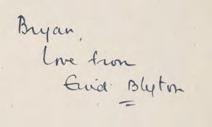 Bryan,
Love from
Enid Blyton